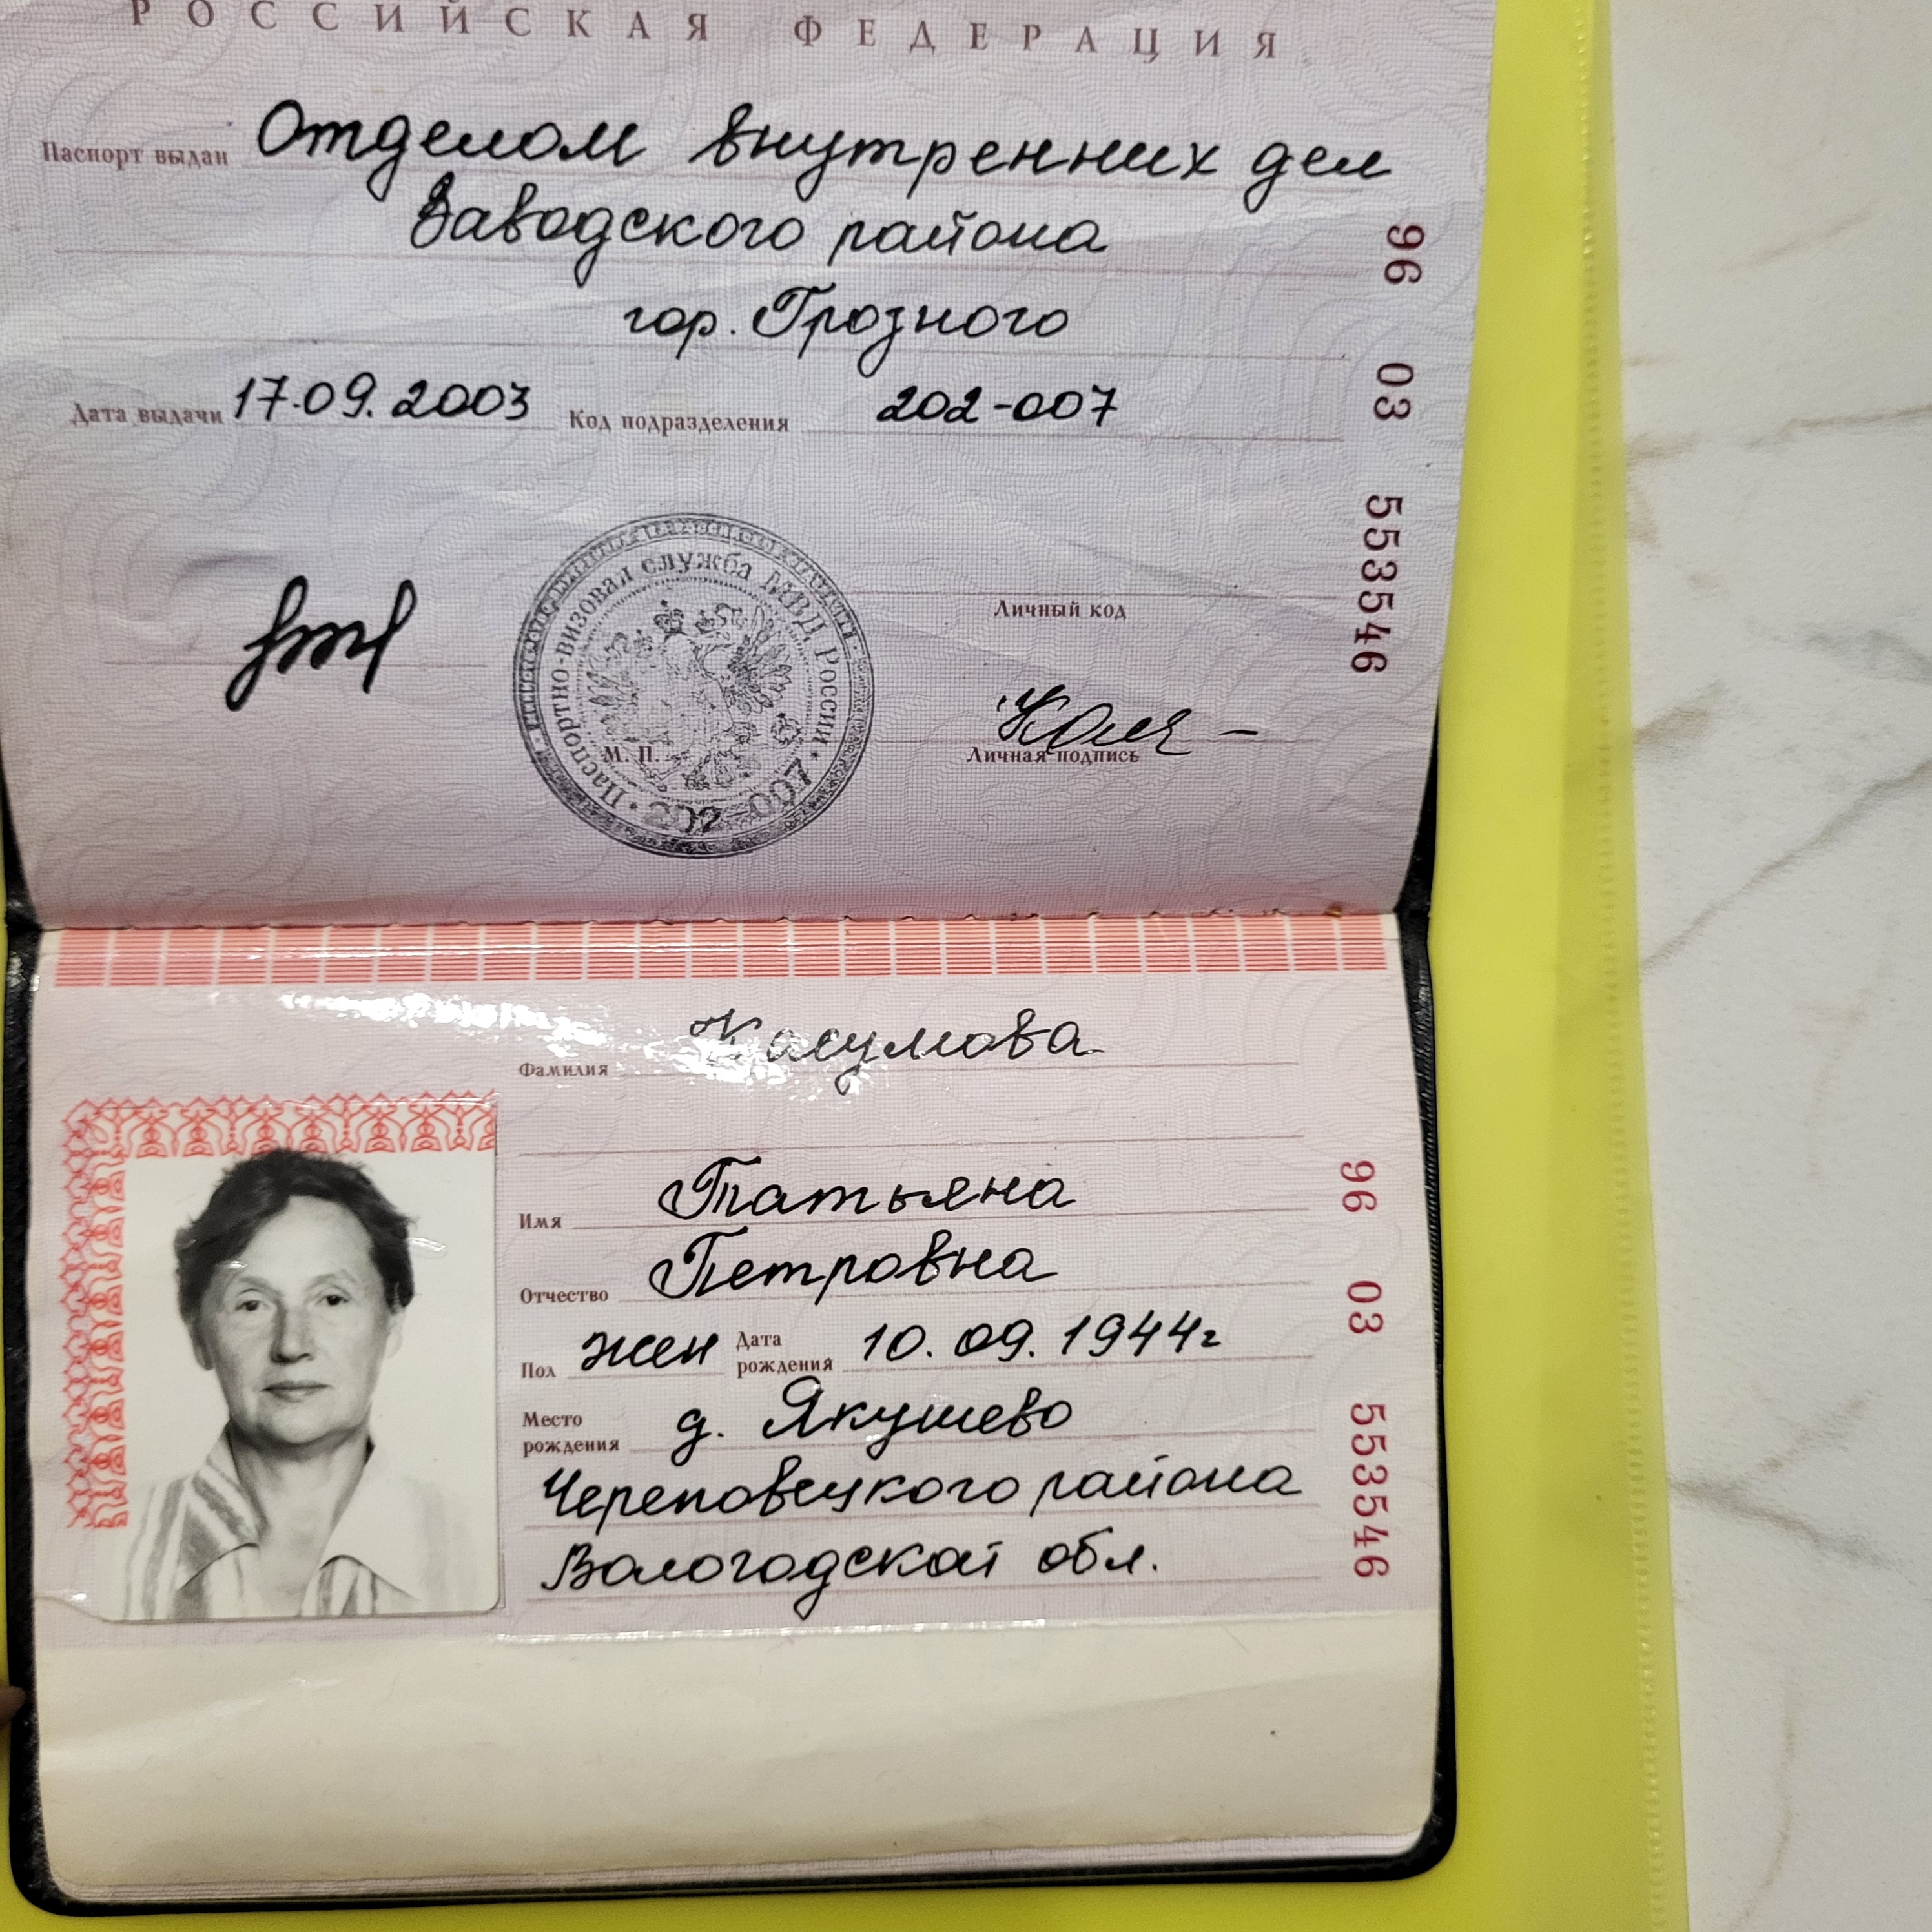 РОССИЙСКАЯ ФЕДЕРАЦИЯ
Паспорт выдан Отделом внутренних дел
Заводского района
гор. Грозного
Дата выдачи 17.09.2003 Код подразделения 202-007
96 03 553546
Паспортно-визовая служба МВД России
202-007
М. П.
Личный код
Личная подпись
Фамилия Касумова
Имя Татьяна
Отчество Петровна
Пол жен Дата рождения 10.09.1944г
Место рождения д. Якушево
Череповецкого района
Вологодской обл.
96 03 553546